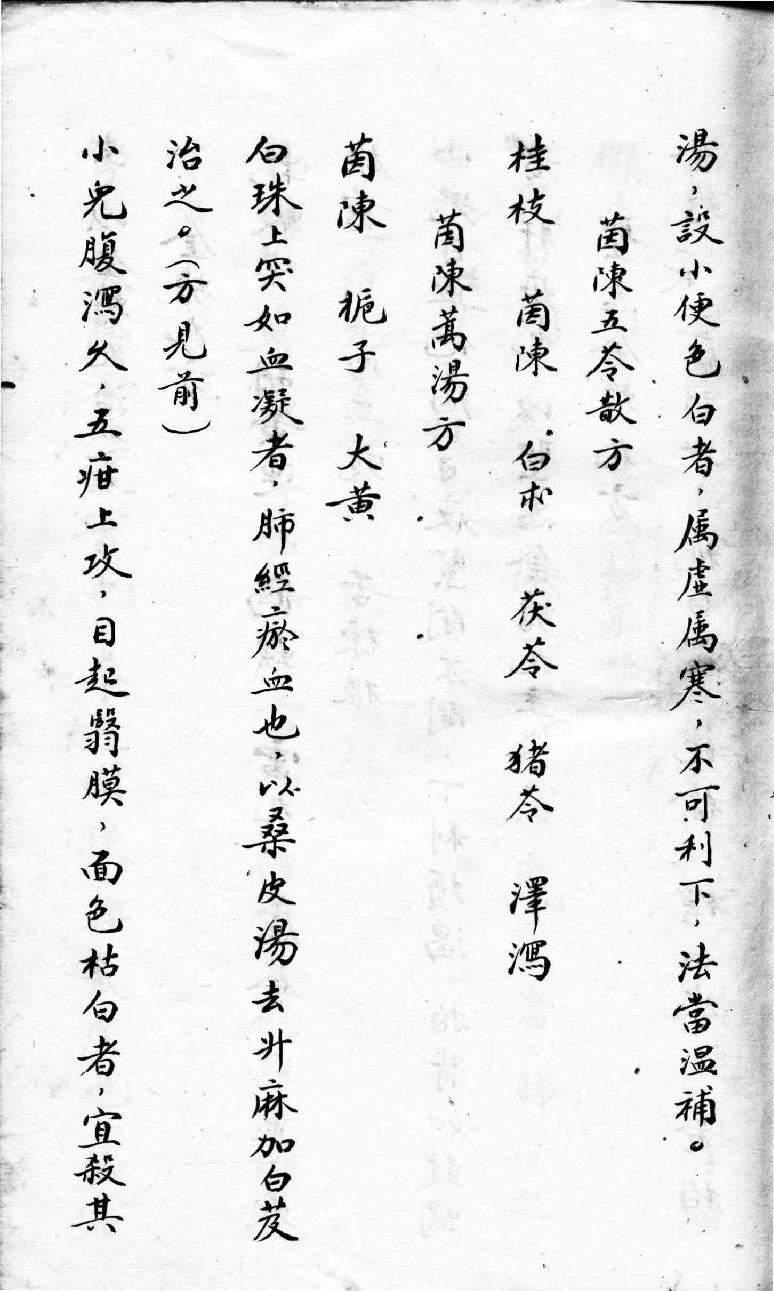 湯，設小便色白者，属虛属寒，不可利下，法當溫補。
茵陳五苓散方
桂枝　茵陳　白朮　茯苓　猪苓　澤瀉
茵陳蒿湯方
茵陳　梔子　大黃
白珠上突如血凝者，肺經瘀血也，以桑皮湯去升麻加白芨
治之。（方見前）
小兒腹瀉久，五疳上攻，目起翳膜，面色枯白者，宜殺其